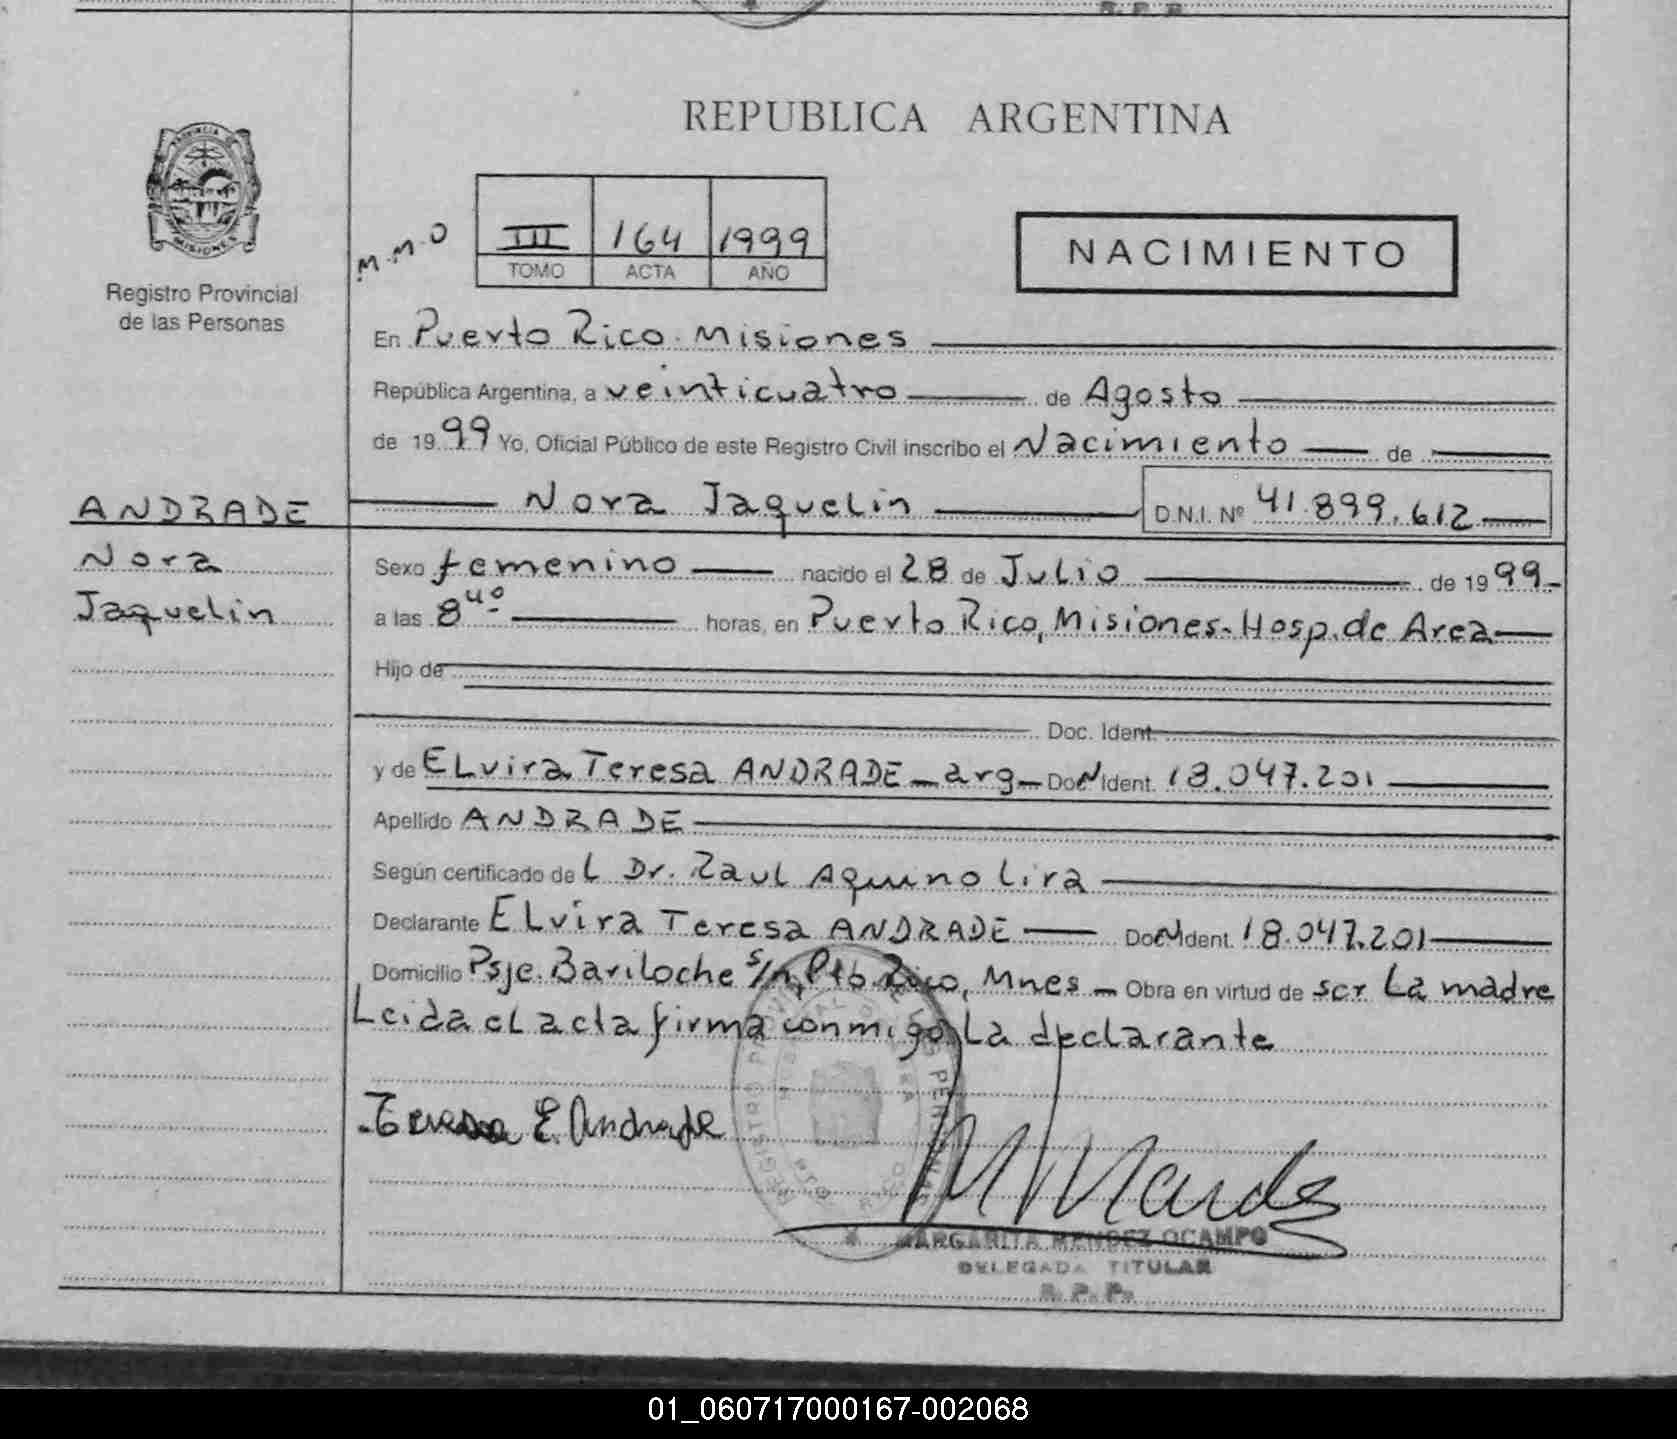 S. P. P.
REPUBLICA ARGENTINA
PROVINCIA DE
MISIONES
Registro Provincial
de las Personas
M.M.O
III 164 1999
TOMO ACTA AÑO
NACIMIENTO
En Puerto Rico. Misiones
República Argentina, a veinticuatro de Agosto
de 1999 Yo, Oficial Público de este Registro Civil inscribo el Nacimiento de
ANDRADE
Nora
Jaquelin
Nora Jaquelin D.N.I. Nº 41.899.612
Sexo femenino nacido el 28 de Julio de 1999-
a las 8 40 horas, en Puerto Rico, Misiones-Hosp. de Area
Hijo de
Doc. Ident.
y de ELvira Teresa ANDRADE - arg - DocN Ident. 18.047.201
Apellido ANDRADE
Según certificado del Dr. Raul Aquino Lira
Declarante ELvira Teresa ANDRADE DocN Ident. 18.047.201
Domicilio Psje. Bariloche s/n, Pto Rico, Mnes - Obra en virtud de ser La madre
Leida el acta firma conmigo La declarante
Teresa E. Andrade
MARGARITA MENDEZ OCAMPO
DELEGADA TITULAR
R. P. P.
01_060717000167-002068